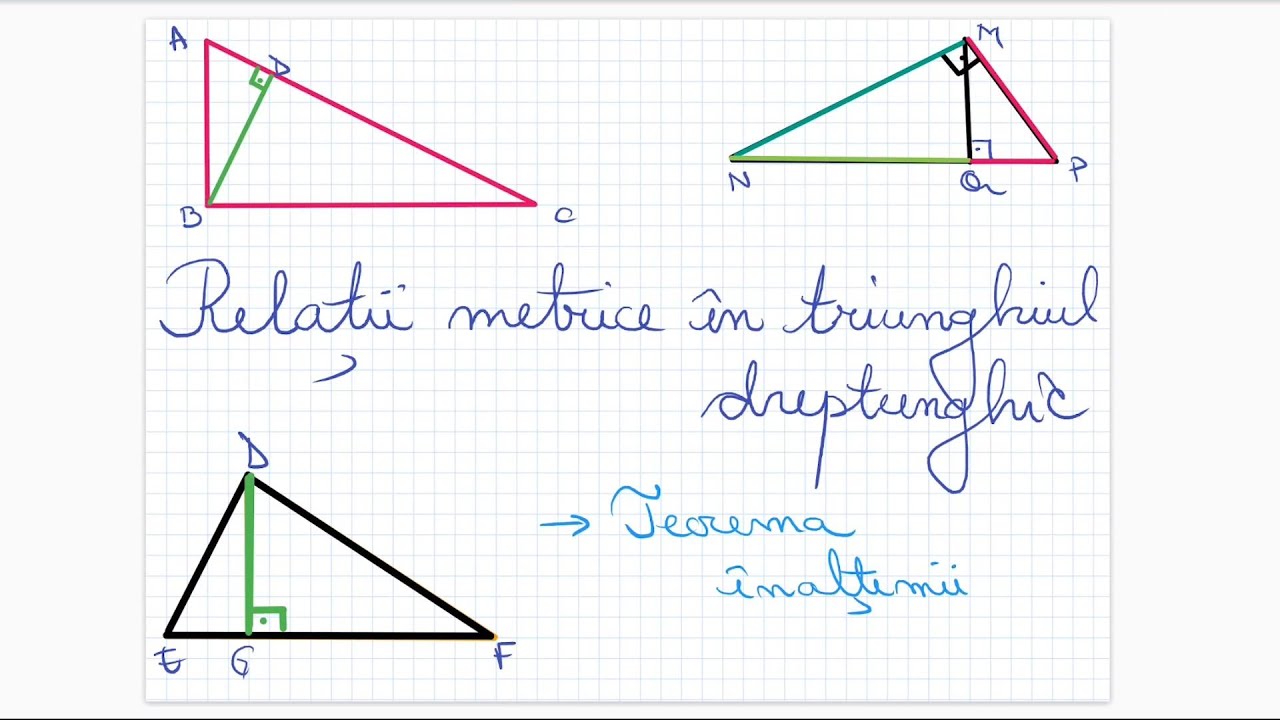 A
D
B
C
M
N
Q
P
Relații metrice în triunghiul
dreptunghic
D
E
G
F
→ Teorema
înalțimii